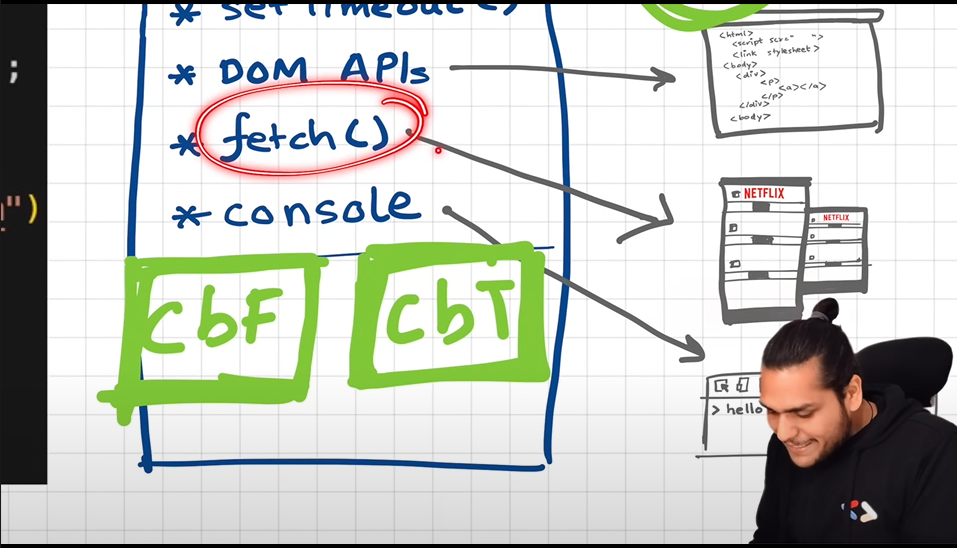 * setTimeout()
;
* DOM APIs
* fetch()
")
* console
CbF
CbT
<html>
<link stylesheet>
<body>
<div>
<p>
<a></a>
</p>
</div>
<body>
NETFLIX
NETFLIX
> hello